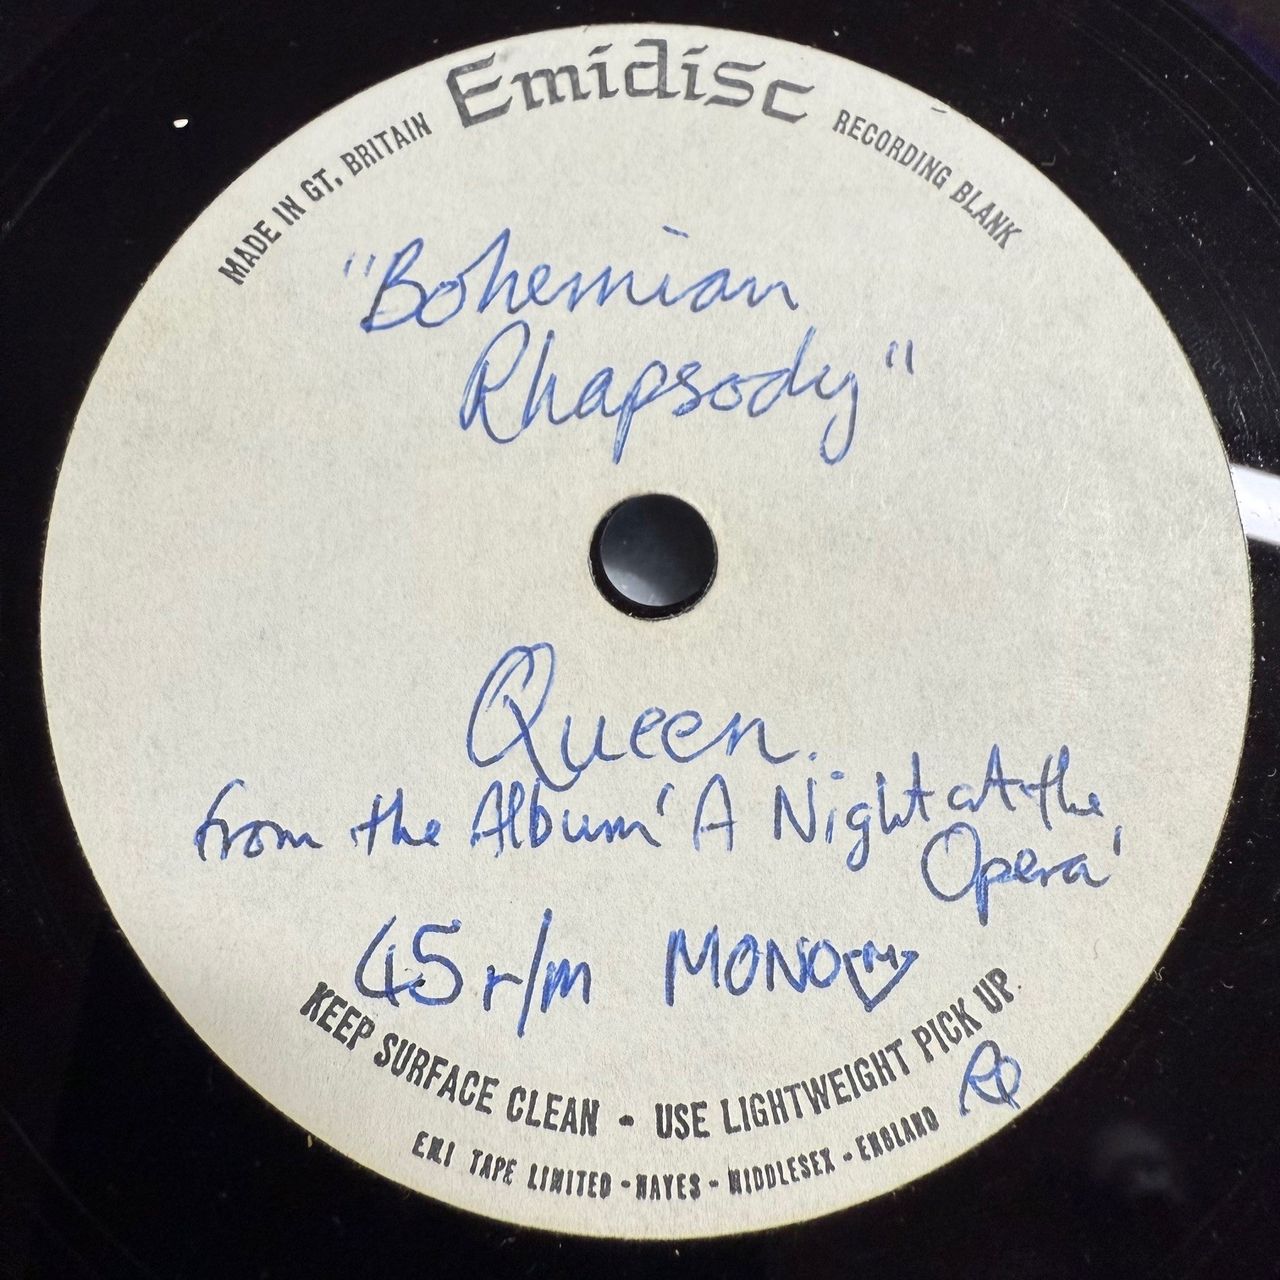 Emidisc
MADE IN GT. BRITAIN
RECORDING BLANK
"Bohemian
Rhapsody"
Queen.
from the Album 'A Night at the
Opera'
45 r/m MONO
KEEP SURFACE CLEAN - USE LIGHTWEIGHT PICK UP.
E.M.I TAPE LIMITED - HAYES - MIDDLESEX - ENGLAND